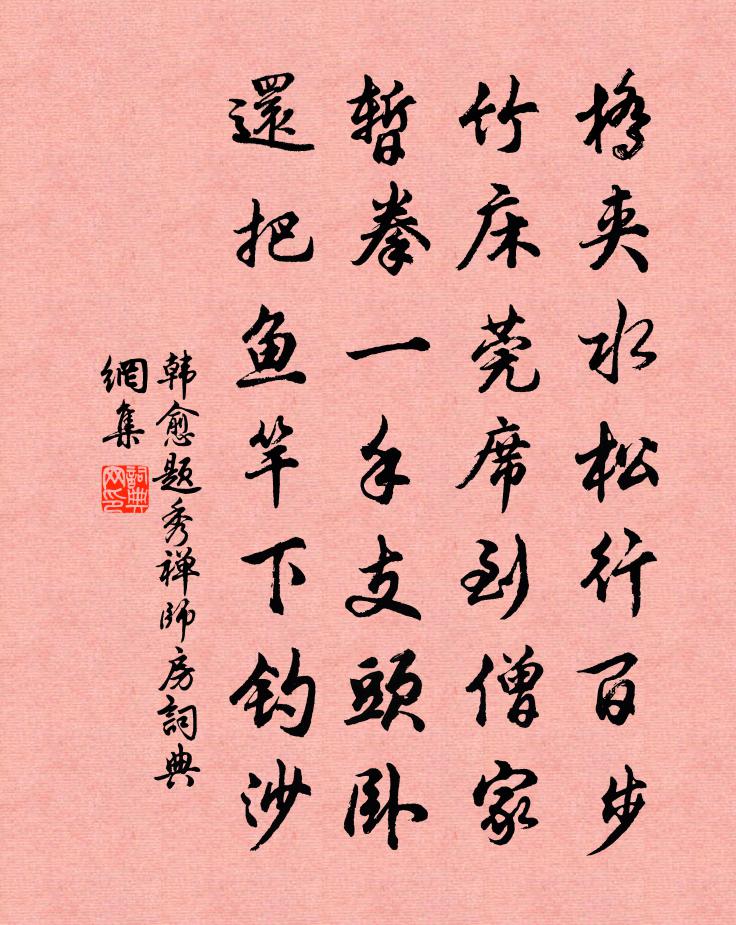 橋夹水松行百步
竹床莞席到僧家
暫拳一手支頭卧
還把鱼竿下釣沙
韩愈题秀禅師房詞典
網集
詞典网印